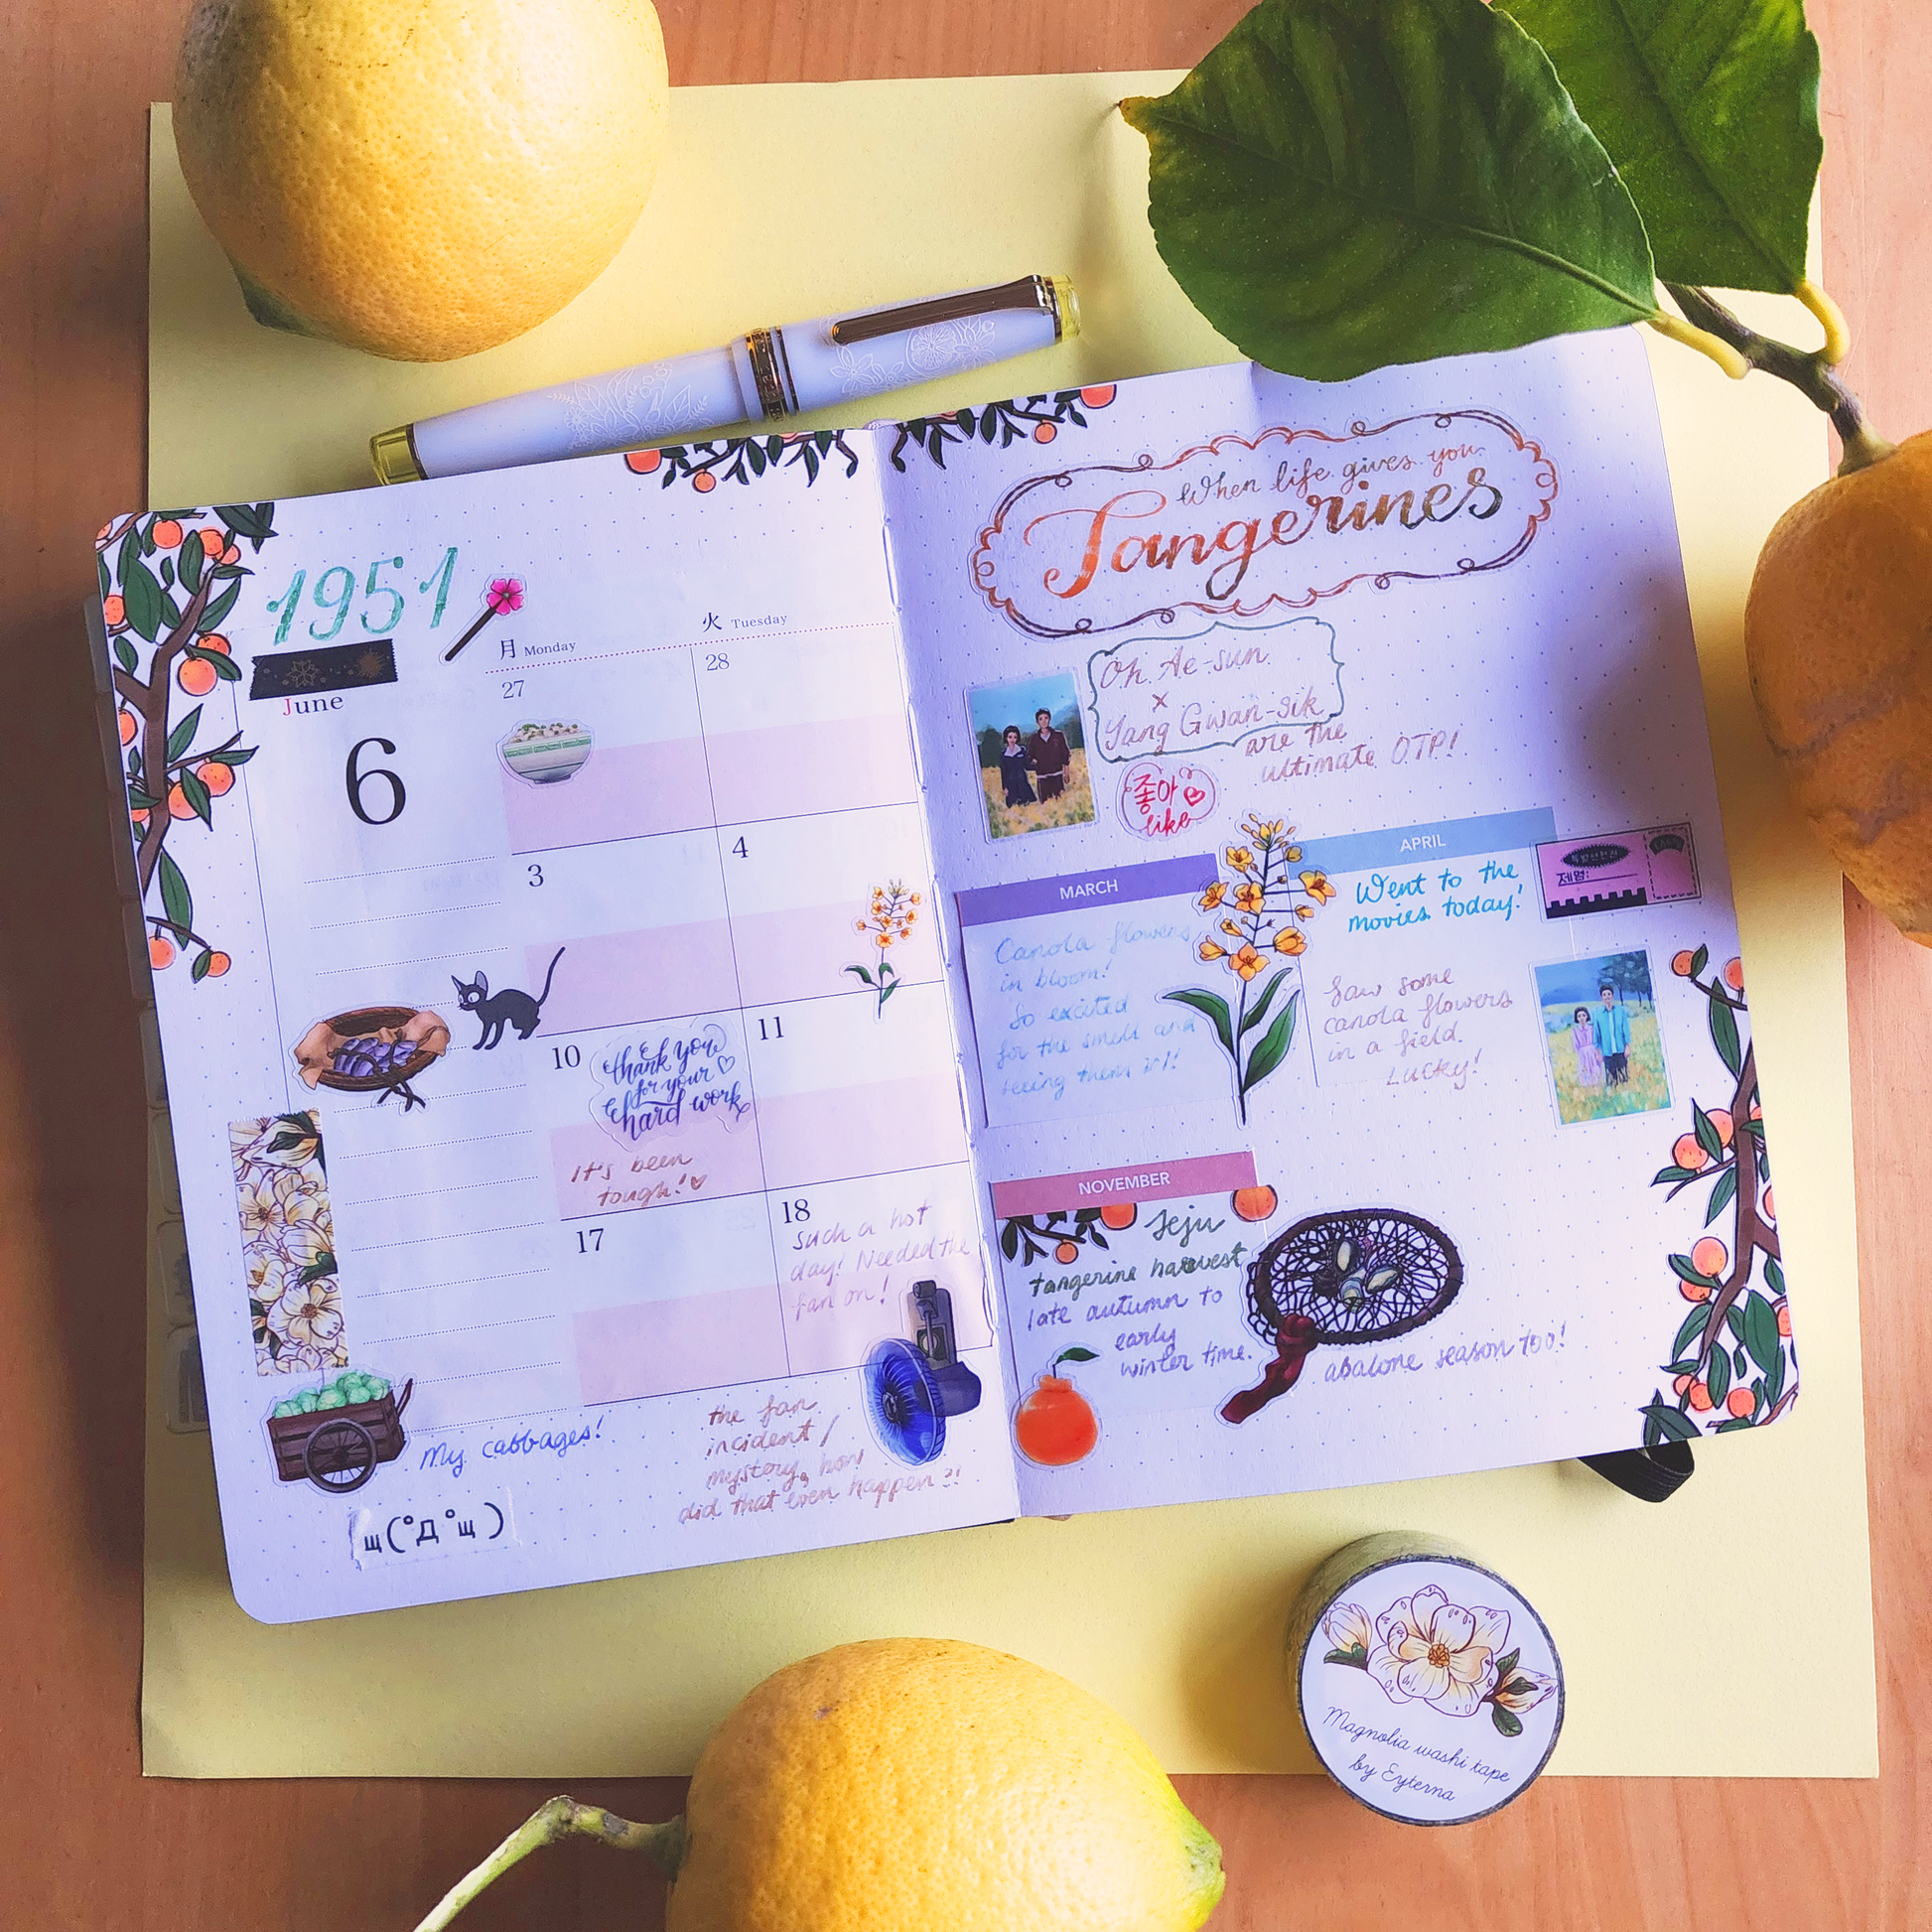 1951
June
6
月 Monday
火 Tuesday
27
28
3
4
10
thank you
for your
hard work
It's been
tough!
11
17
18
such a hot
day! Needed the
fan on!
My cabbages!
the fan
incident /
mystery, how
did that even happen?!
щ(°Д°щ)
When life gives you
Tangerines
Oh Ae-sun
x
Yang Gwan-sik
are the
ultimate OTP!
좋아
like
MARCH
Canola flowers
in bloom!
So excited
for the smell and
seeing them irl!
APRIL
Went to the
movies today!
제명:
Saw some
canola flowers
in a field.
Lucky!
NOVEMBER
Jeju
tangerine harvest
late autumn to
early
winter time.
abalone season too!
Magnolia washi tape
by Eyterna